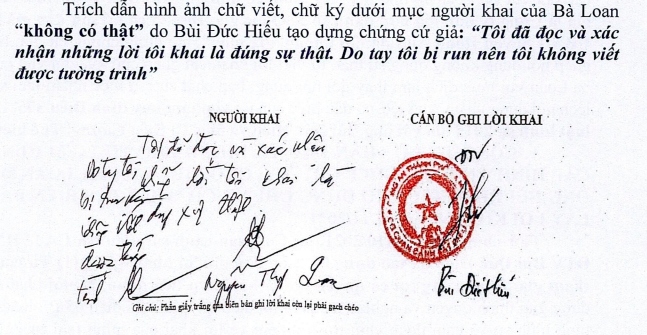 Trích dẫn hình ảnh chữ viết, chữ ký dưới mục người khai của Bà Loan
"không có thật" do Bùi Đức Hiếu tạo dựng chứng cứ giả: "Tôi đã đọc và xác
nhận những lời tôi khai là đúng sự thật. Do tay tôi bị run nên tôi không viết
được tường trình"
NGƯỜI KHAI
CÁN BỘ GHI LỜI KHAI
Tôi đã đọc và xác nhận
Do tay tôi lời tôi khai là
bị run
sự thật
được tường
trình
Nguyễn Thị Loan
Bùi Đức Hiếu
Ghi chú: Phần giấy trắng của biên bản ghi lời khai còn lại phải gạch chéo